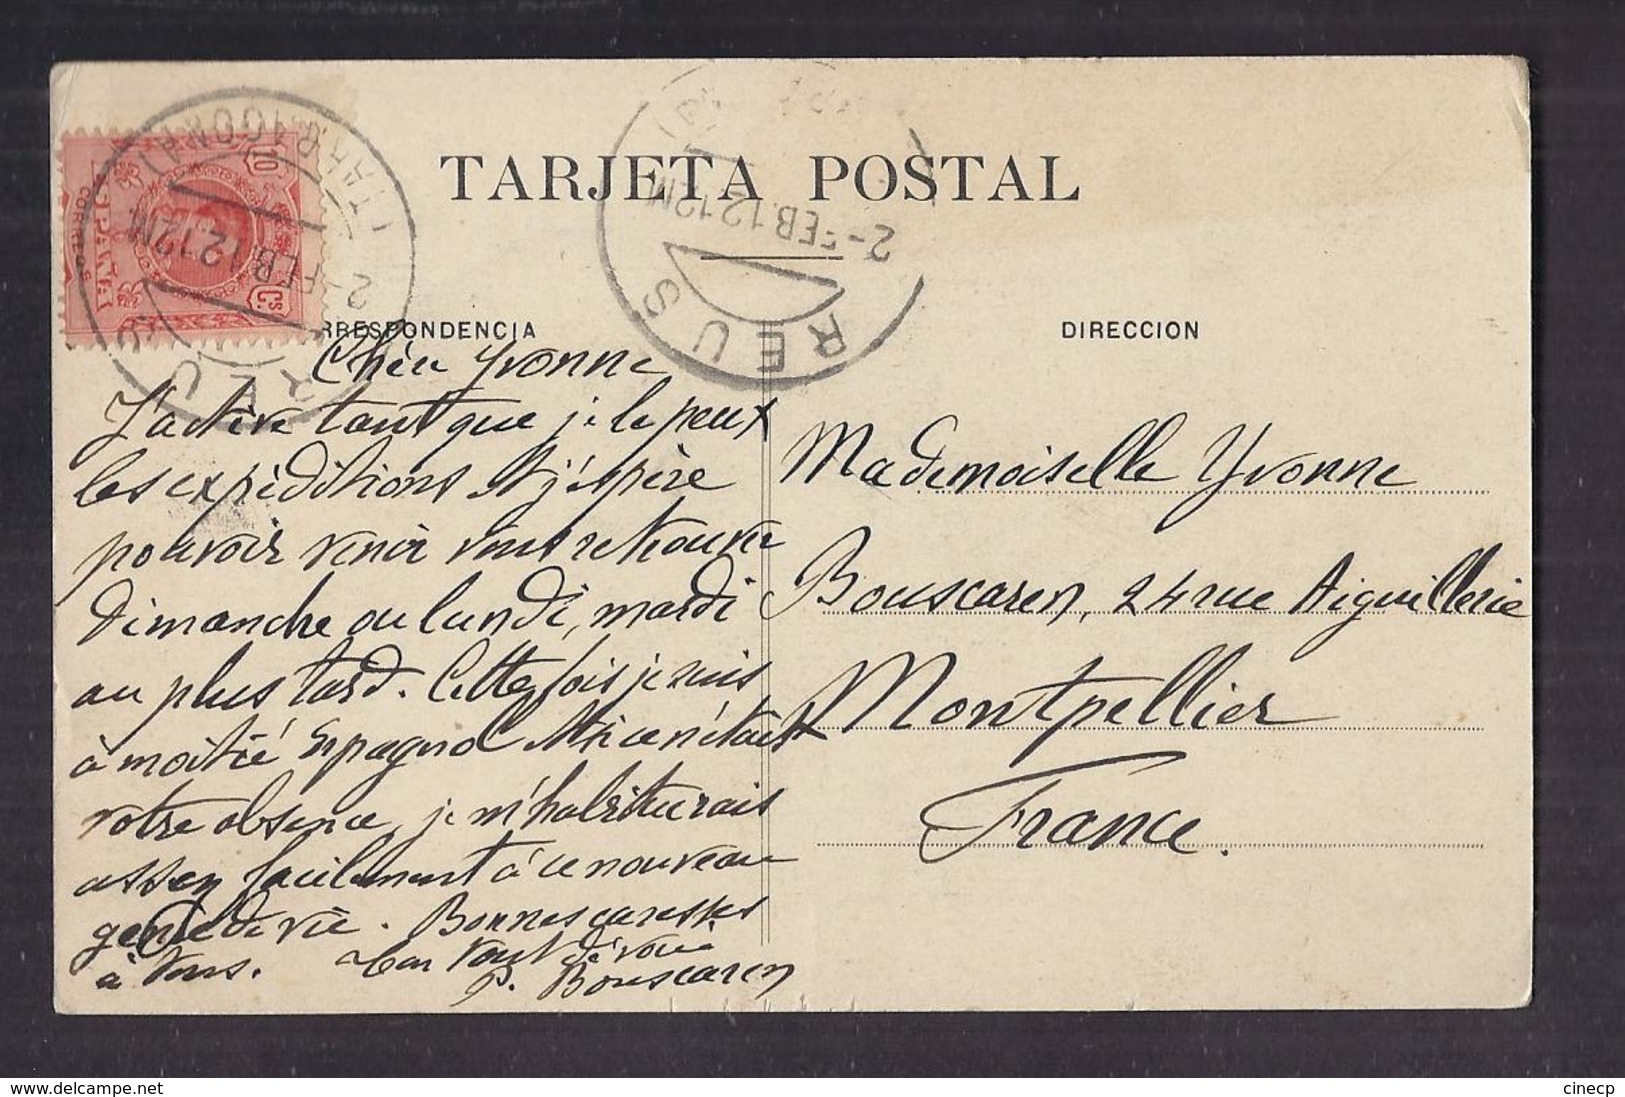 TARJETA POSTAL
RRESPONDENCIA
DIRECCION
10
Cs
CORREOS
ESPAÑA
REUS
2-FEB.12 12M
(TARRAGONA)
REUS
2-FEB.12 12M
Chère Yvonne
J'active tant que je le peux
les expéditions et j'espère
pouvoir venir vous retrouver
dimanche ou lundi, mardi
au plus tard. Cette fois je suis
à moitié Espagnol et si ce n'était
votre absence, je m'habituerais
assez facilement à ce nouveau
genre de vie. Bonnes caresses
à tous. tout dévoué
P. Bouscaren
Mademoiselle Yvonne
Bouscaren, 24 rue Aiguillerie
Montpellier
France.
cinecp